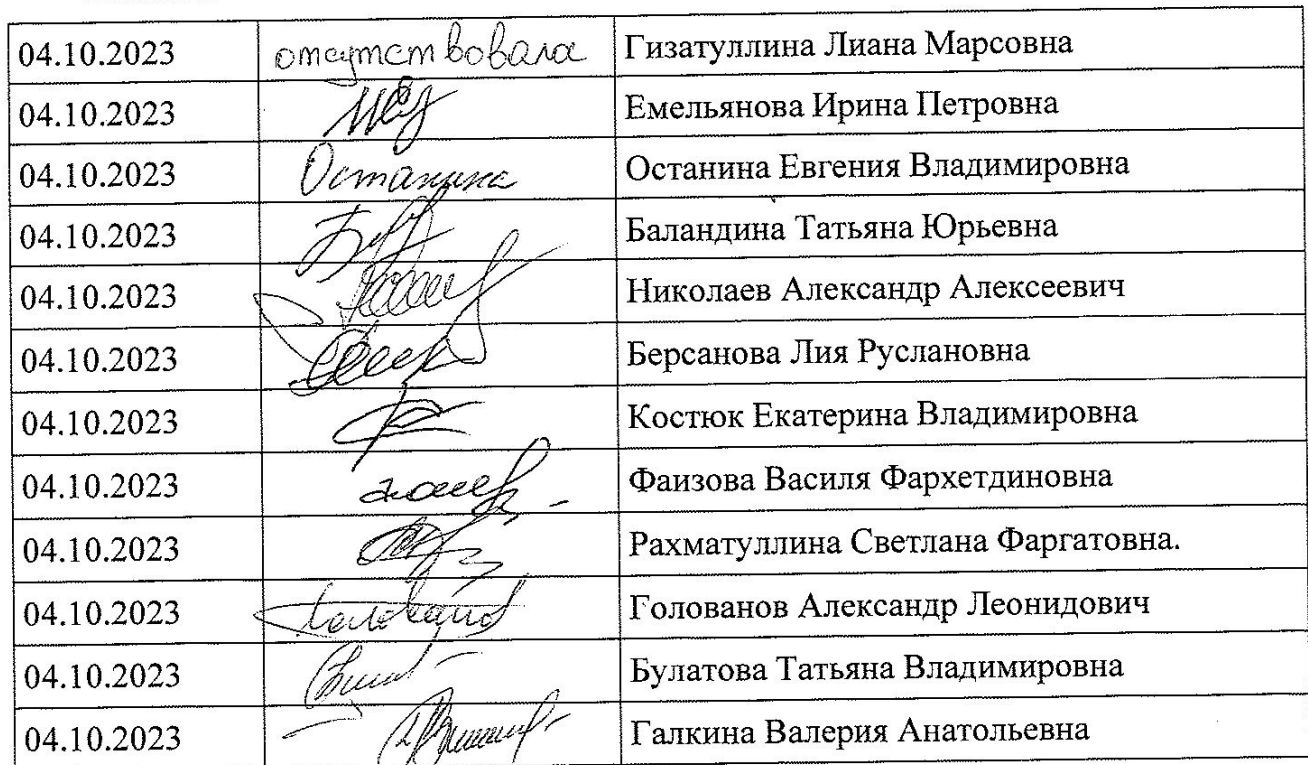 04.10.2023 отсутствовала Гизатуллина Лиана Марсовна
04.10.2023 Емельянова Ирина Петровна
04.10.2023 Останина Останина Евгения Владимировна
04.10.2023 Баландина Татьяна Юрьевна
04.10.2023 Николаев Александр Алексеевич
04.10.2023 Берсанова Лия Руслановна
04.10.2023 Костюк Екатерина Владимировна
04.10.2023 Фаизова Василя Фархетдиновна
04.10.2023 Рахматуллина Светлана Фаргатовна.
04.10.2023 Голованов Александр Леонидович
04.10.2023 Булатова Татьяна Владимировна
04.10.2023 Галкина Валерия Анатольевна